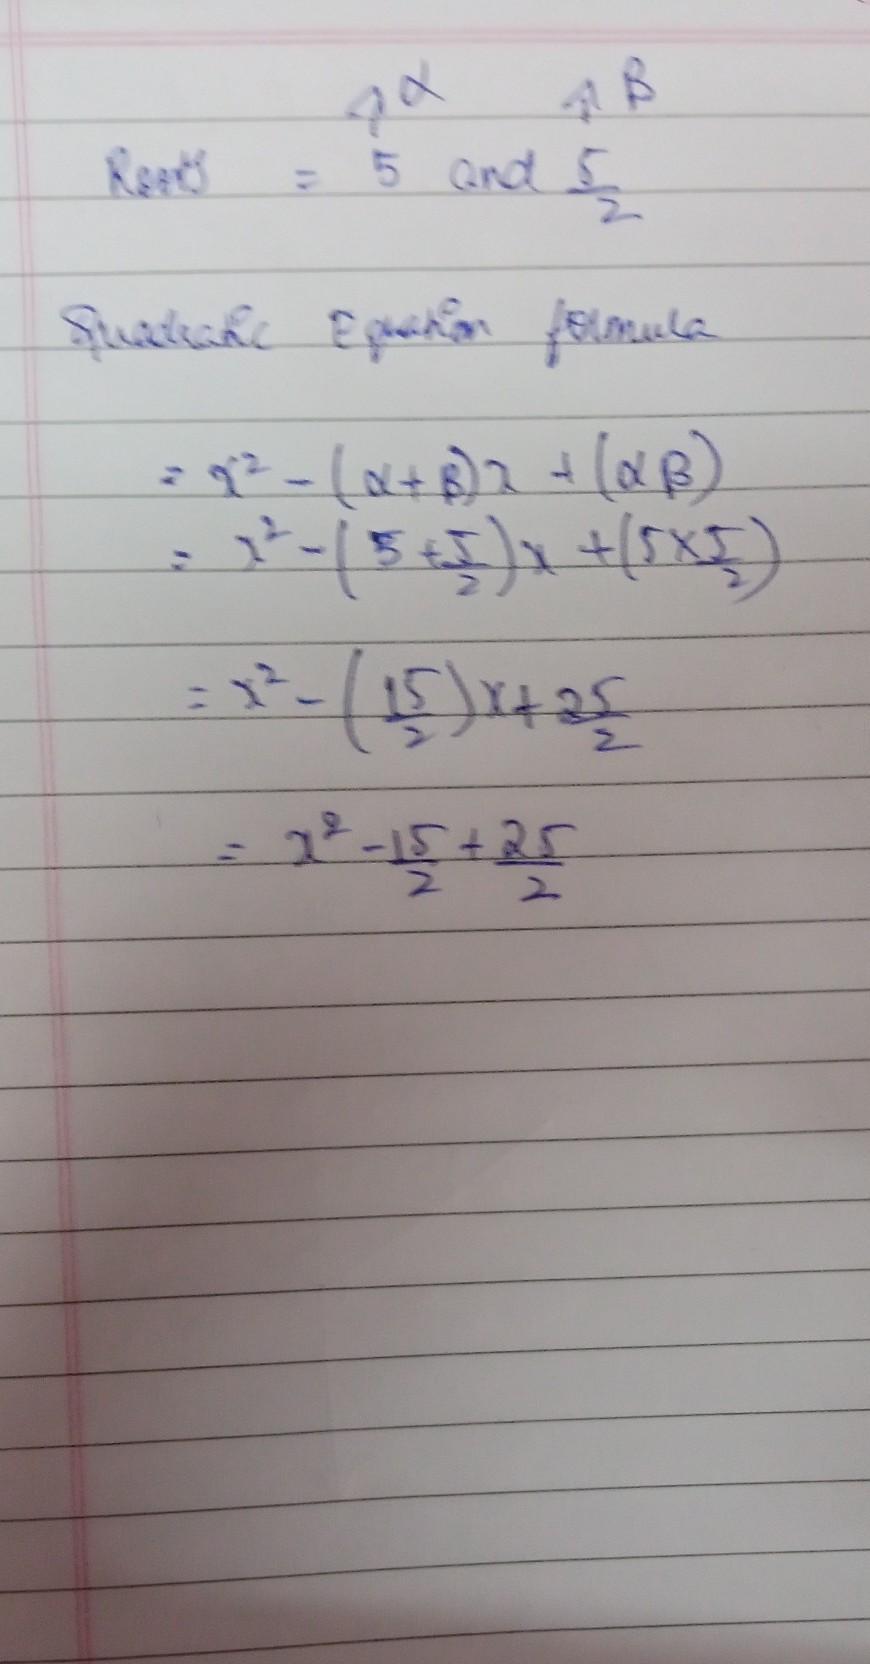 ↑α ↑β
Roots = 5 and 5/2
Quadratic Equation formula
= x² - (α+β)x + (αβ)
= x² - (5 + 5/2)x + (5×5/2)
= x² - (15/2)x + 25/2
= x² - 15/2 + 25/2